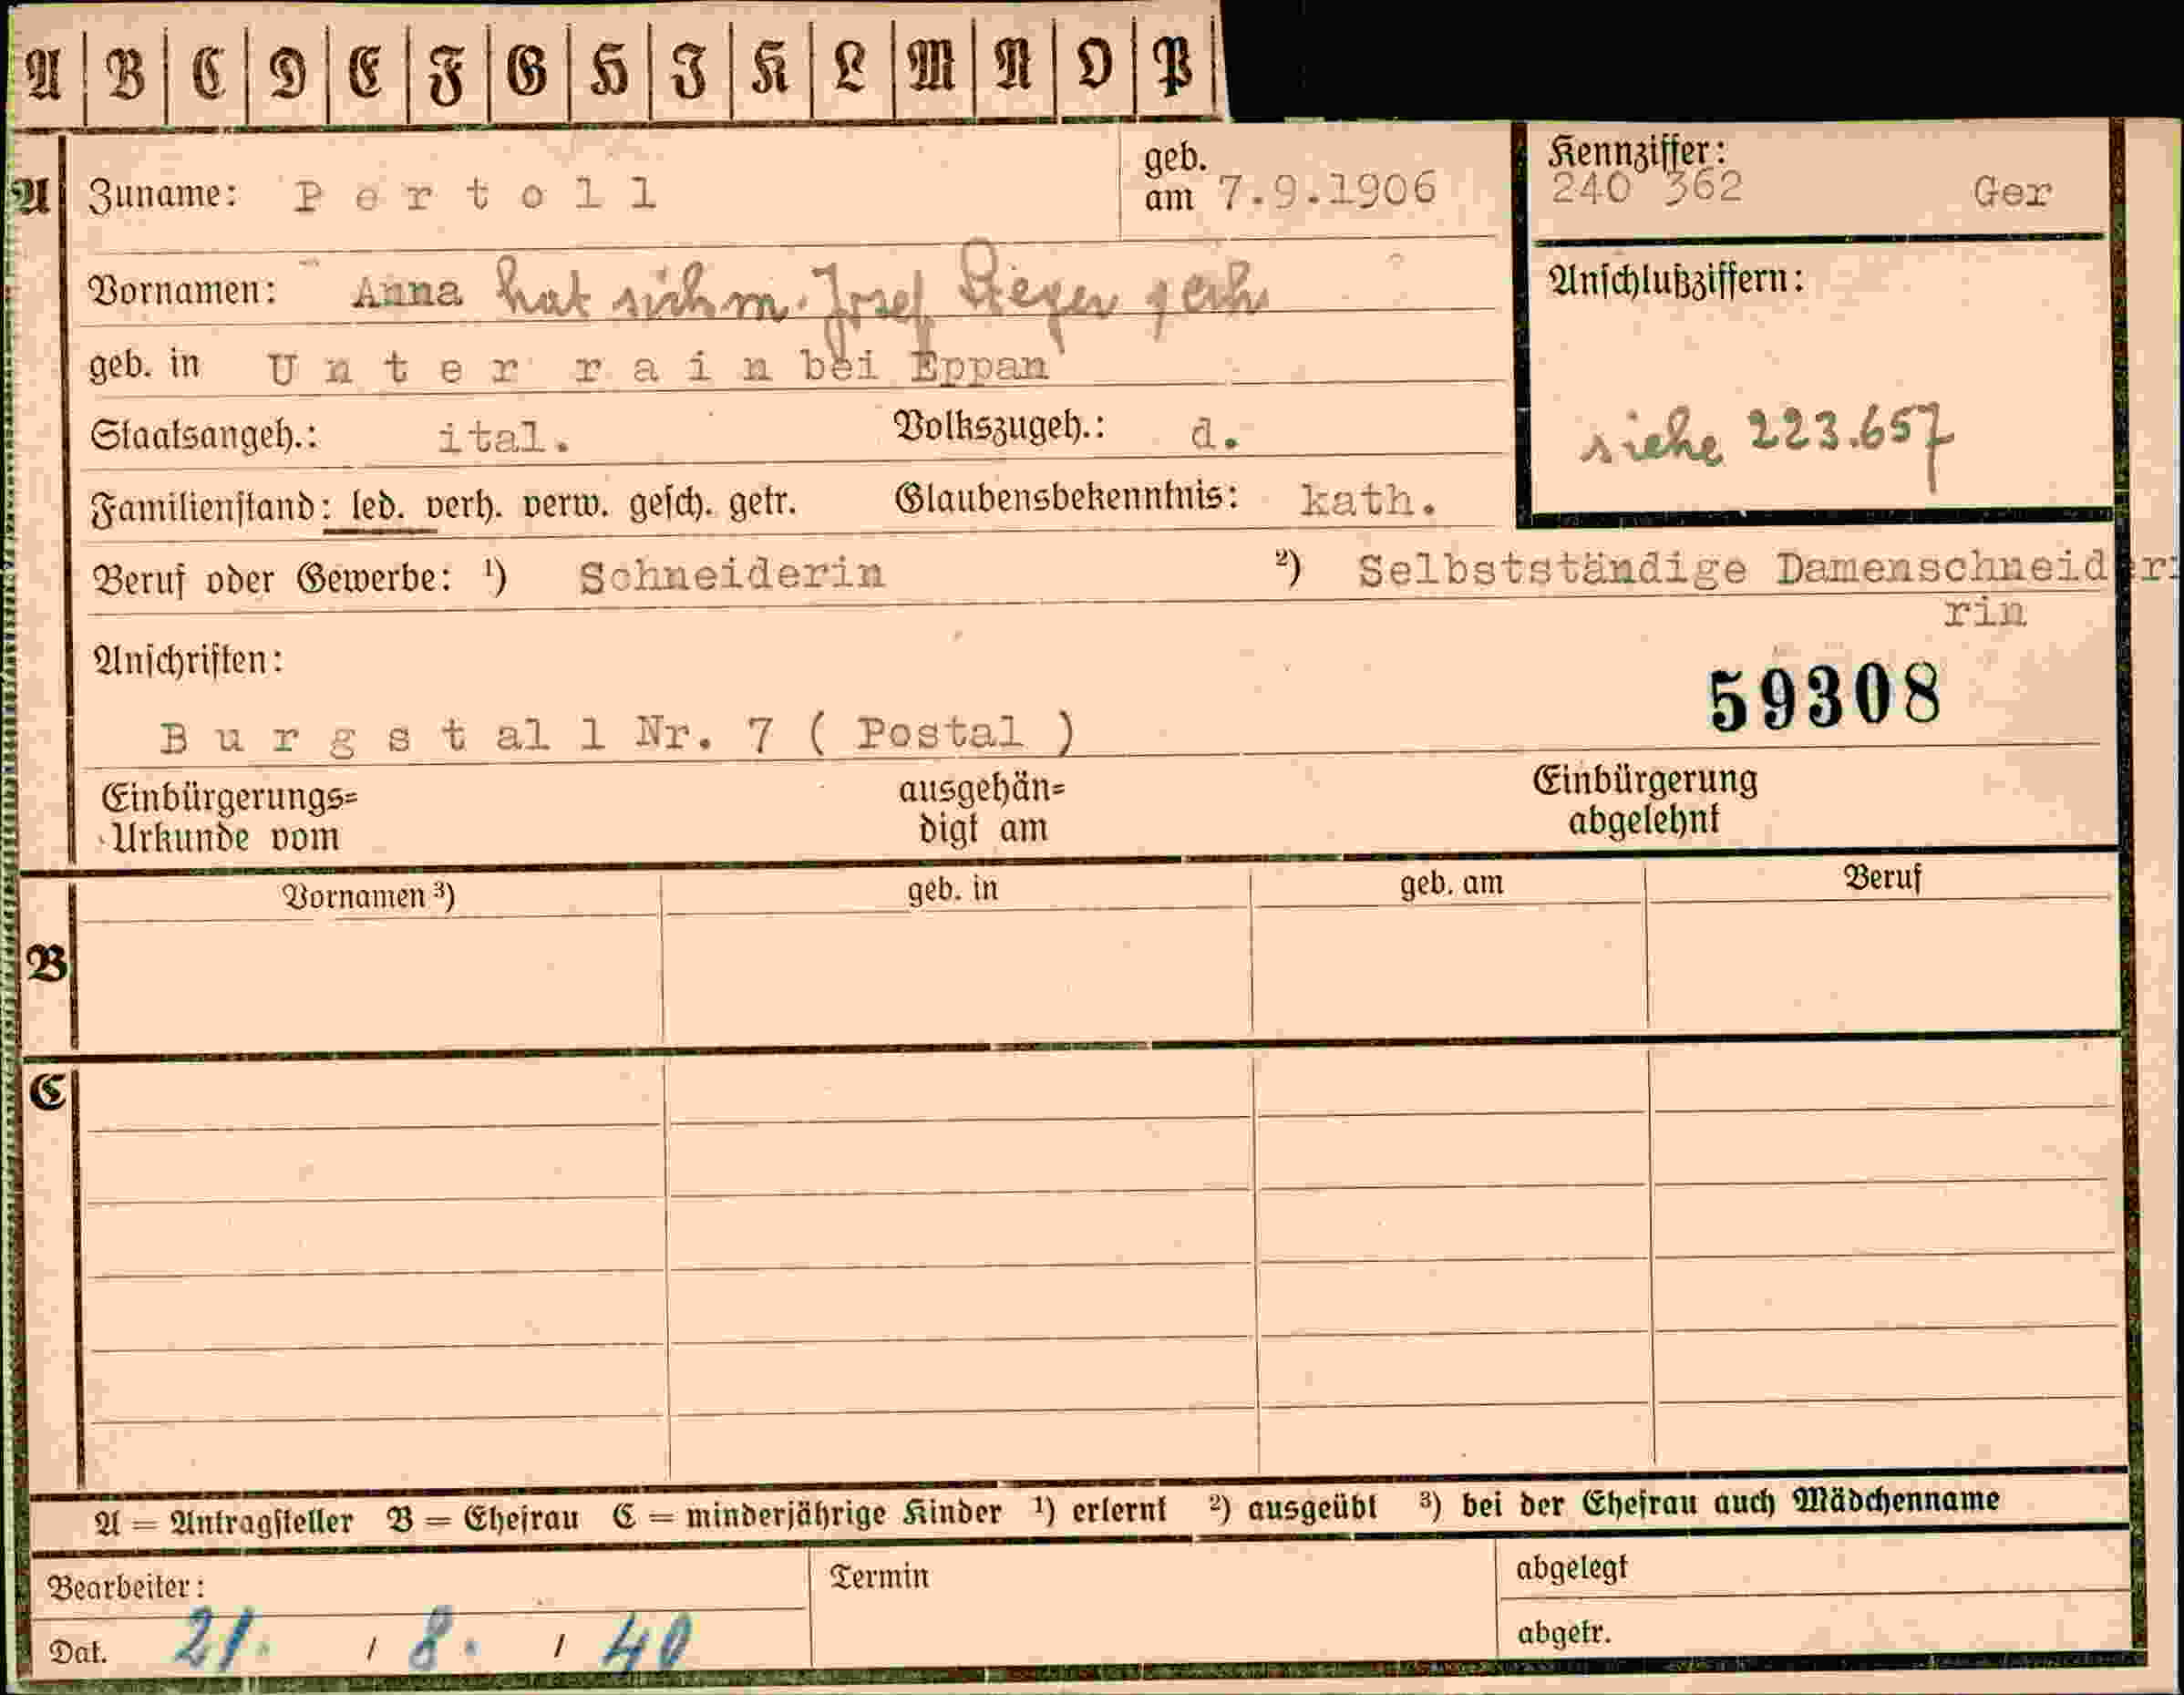 A B C D E F G H J K L M N O P
A Zuname: Pertoll geb. am 7.9.1906 Kennziffer: 240 362 Ger
Vornamen: Anna hat sich m. Josef
Anschlußziffern:
geb. in Unterrain bei Eppan
Staatsangeh.: ital. Volkszugeh.: d.
siehe 223.657
Familienstand: led. verh. verw. gesch. getr. Glaubensbekenntnis: kath.
Beruf oder Gewerbe: ¹) Schneiderin ²) Selbstständige Damenschneider
rin
Anschriften:
59308
Burgstall Nr. 7 ( Postal )
Einbürgerungs= ausgehän= Einbürgerung
Urkunde vom digt am abgelehnt
Vornamen ³) geb. in geb. am Beruf
B
C
A = Antragsteller B = Ehefrau C = minderjährige Kinder ¹) erlernt ²) ausgeübt ³) bei der Ehefrau auch Mädchenname
Bearbeiter: Termin abgelegt
Dat. 21. / 8. / 40 abgetr.